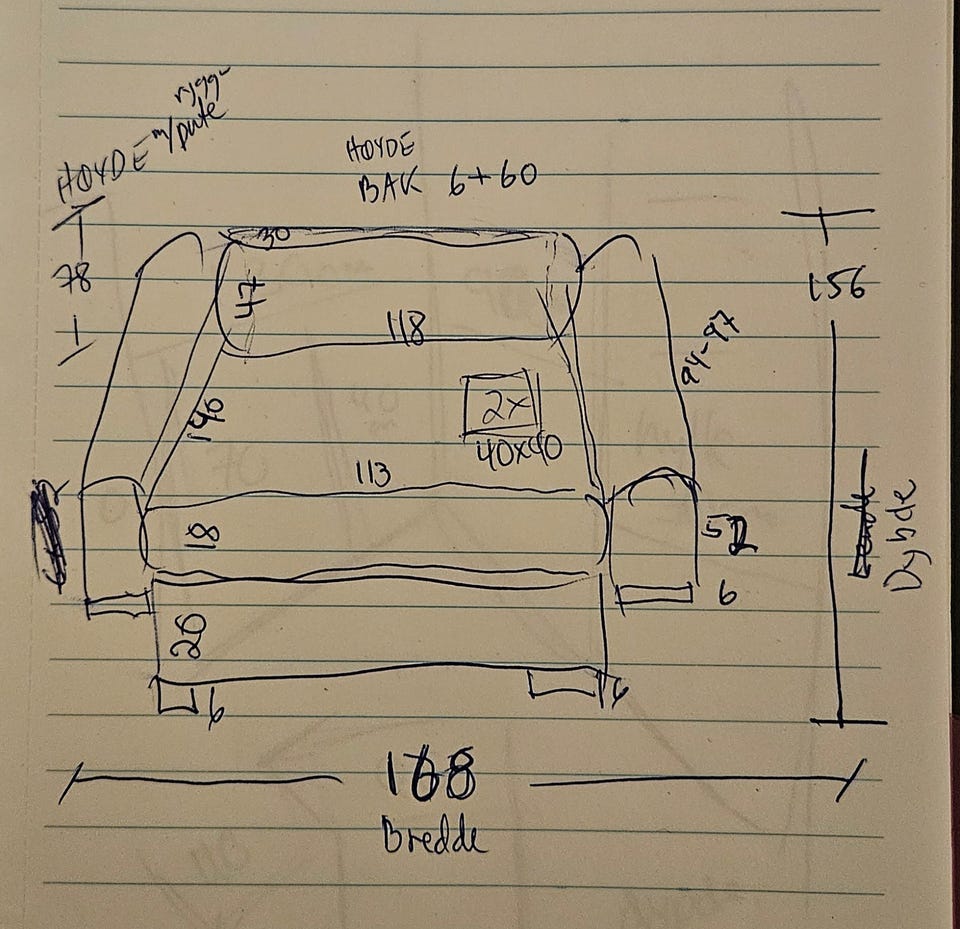 HØYDE m/ rygg-
pute
HØYDE
BAK 6+60
30
78
47
156
118
94-97
2x
40x40
140
113
18
52
Dybde
6
20
6
6
168
Bredde